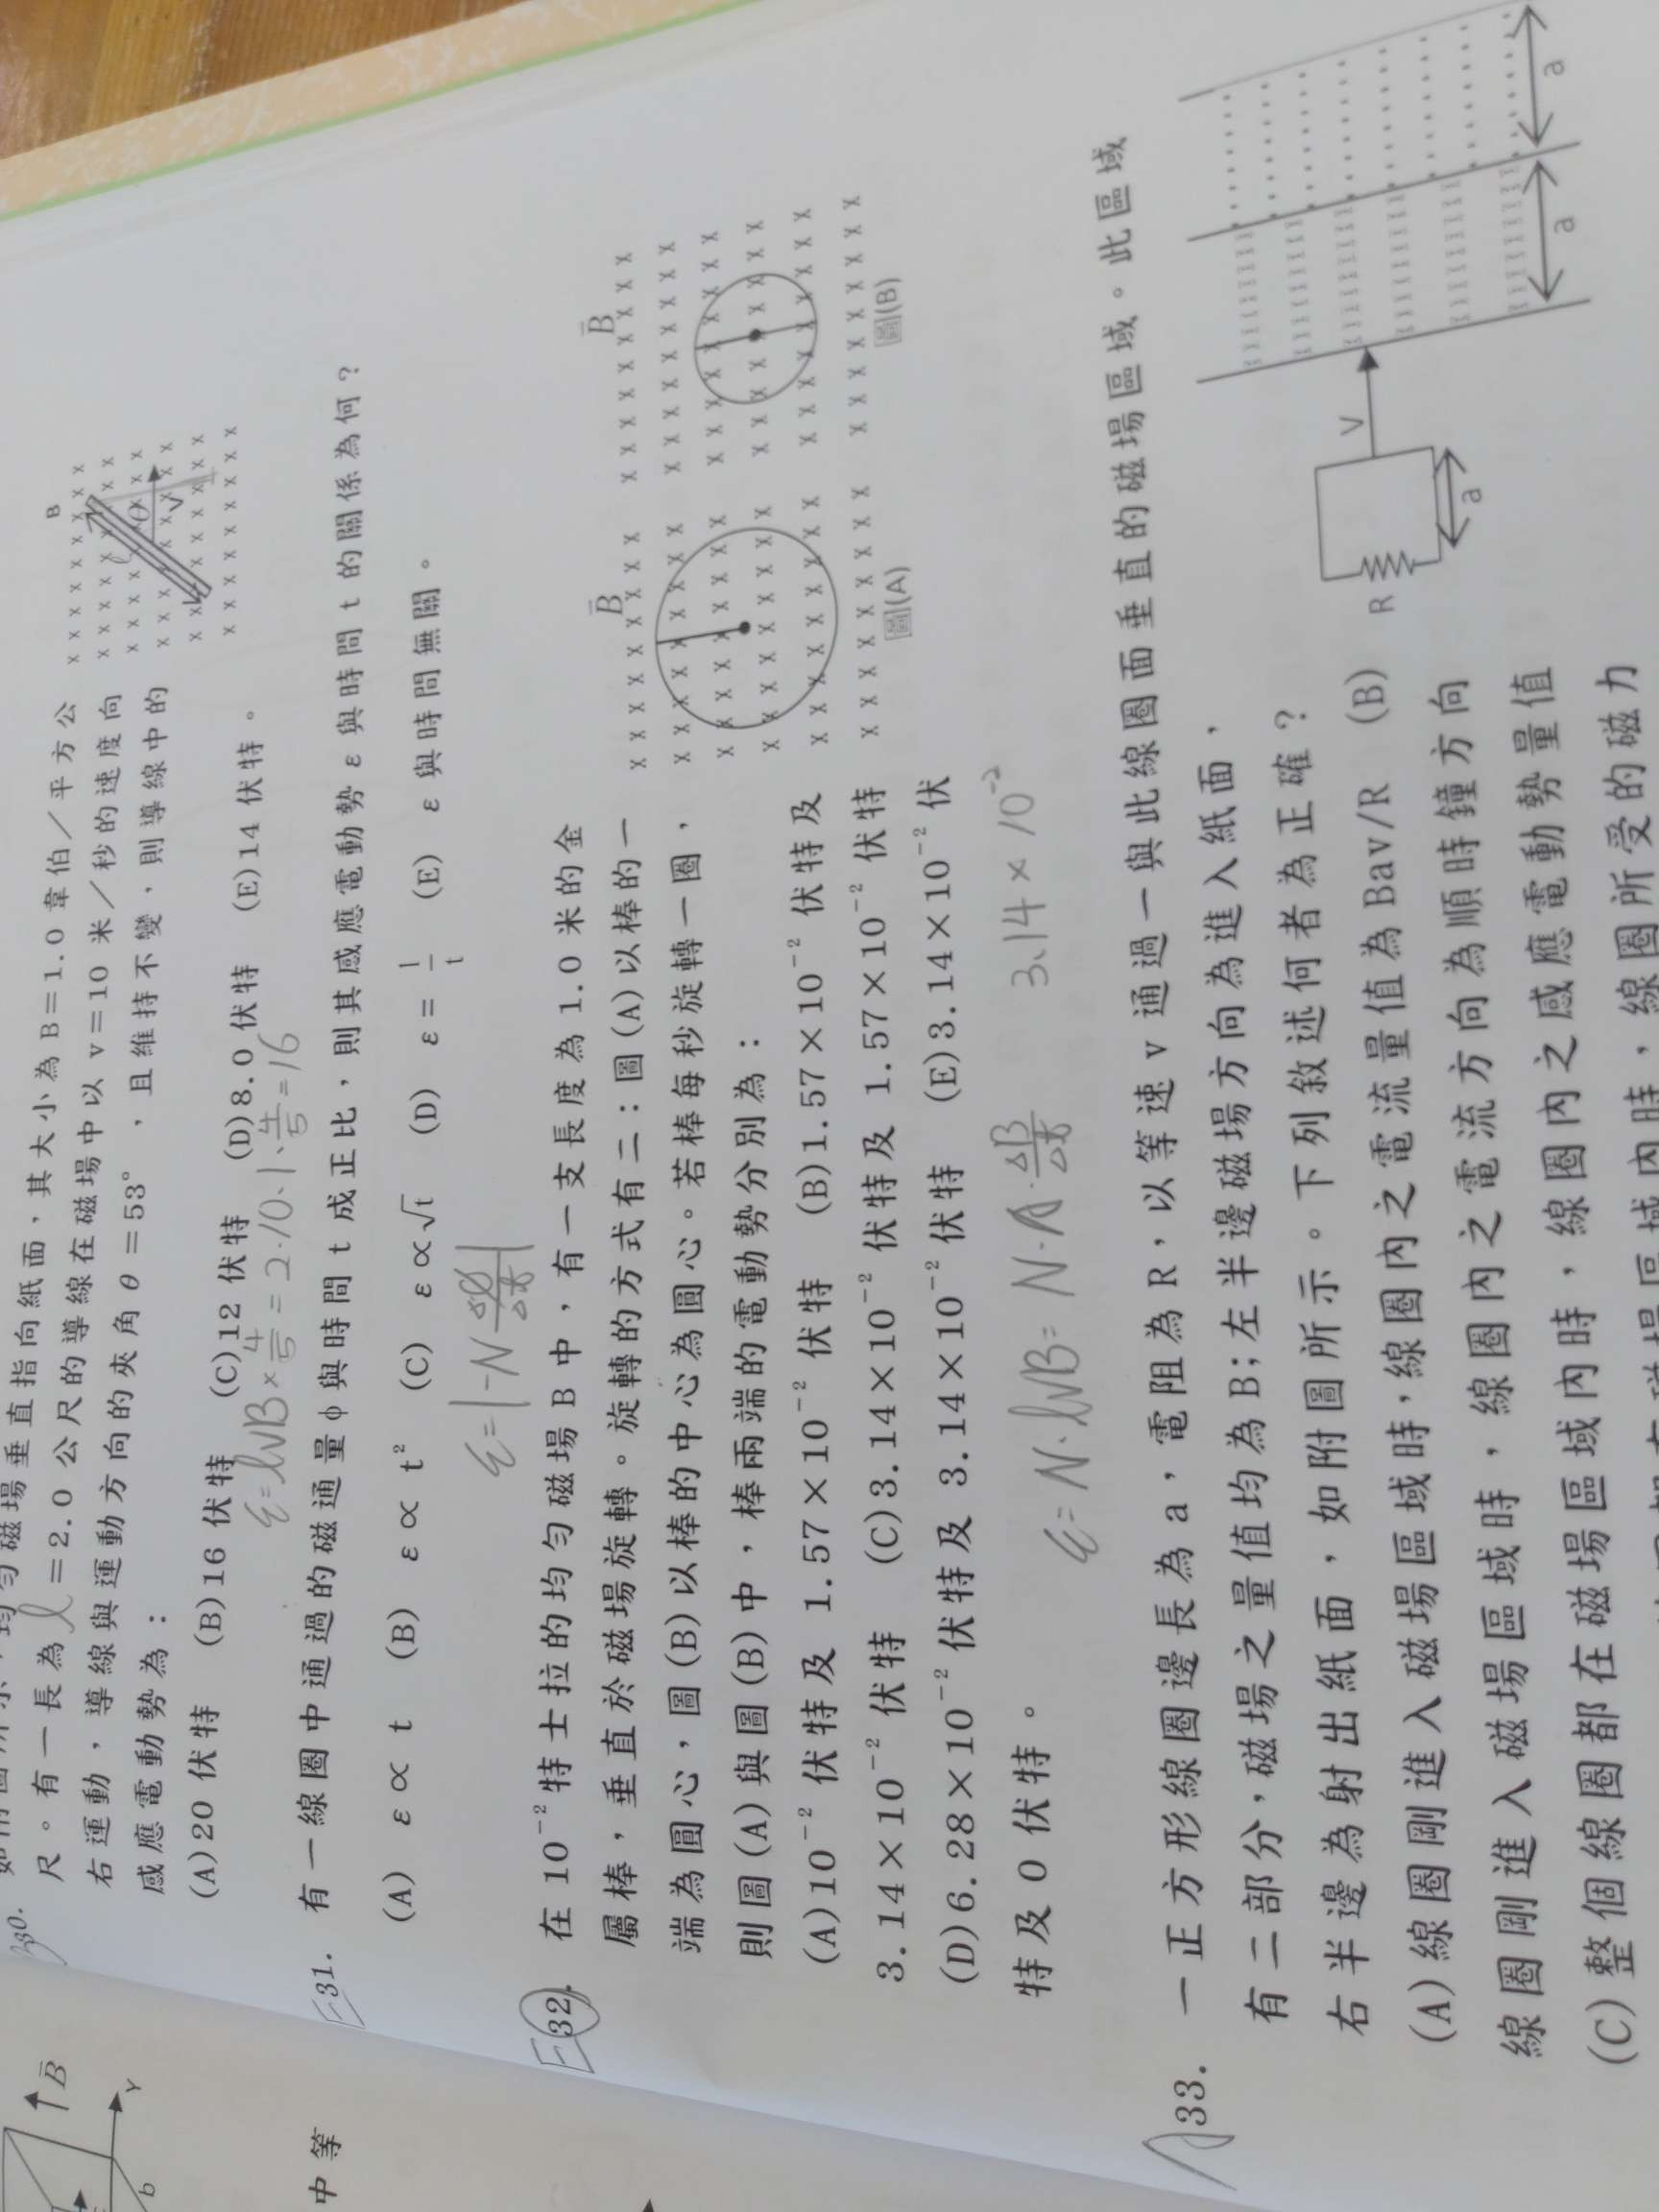 30.
尺。有一長為 l=2.0 公尺的導線在磁場中以 v=10 米/秒的速度向
右運動，導線與運動方向的夾角 θ=53°，且維持不變，則導線中的
感應電動勢為：
(A)20 伏特 (B)16 伏特 (C)12 伏特 (D)8.0 伏特 (E)14 伏特。
ε=lvB×4/5=2·10·1·4/5=16
B
θ
V
E
31. 有一線圈中通過的磁通量 φ 與時間 t 成正比，則其感應電動勢 ε 與時間 t 的關係為何？
(A) ε∝t (B) ε∝t² (C) ε∝√t (D) ε=1/t (E) ε與時間無關。
E
32. 在 10⁻² 特士拉的均勻磁場 B 中，有一支長度為 1.0 米的金
屬棒，垂直於磁場旋轉。旋轉的方式有二：圖(A)以棒的一
端為圓心，圖(B)以棒的中心為圓心。若棒每秒旋轉一圈，
則圖(A)與圖(B)中，棒兩端的電動勢分別為：
(A)10⁻² 伏特及 1.57×10⁻² 伏特 (B)1.57×10⁻² 伏特及
3.14×10⁻² 伏特 (C)3.14×10⁻² 伏特及 1.57×10⁻² 伏特
(D)6.28×10⁻² 伏特及 3.14×10⁻² 伏特 (E)3.14×10⁻² 伏
特及 0 伏特。
B
圖(A)
B
圖(B)
3.14×10⁻²
33. 一正方形線圈邊長為 a，電阻為 R，以等速 v 通過一與此線圈面垂直的磁場區域。此區域
有二部分，磁場之量值均為 B；左半邊磁場方向為進入紙面，
右半邊為射出紙面，如附圖所示。下列敘述何者為正確？
(A)線圈剛進入磁場區域時，線圈內之電流量值為 Bav/R (B)
線圈剛進入磁場區域時，線圈內之電流方向為順時鐘方向
(C)整個線圈都在磁場區域內時，線圈內之感應電動勢量值
R
V
a
a
a
B
Y
b
中等